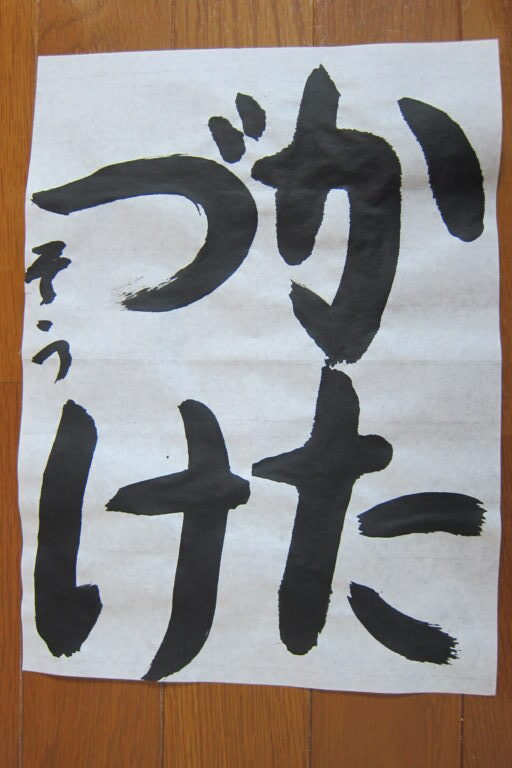 かた
づけ
そう